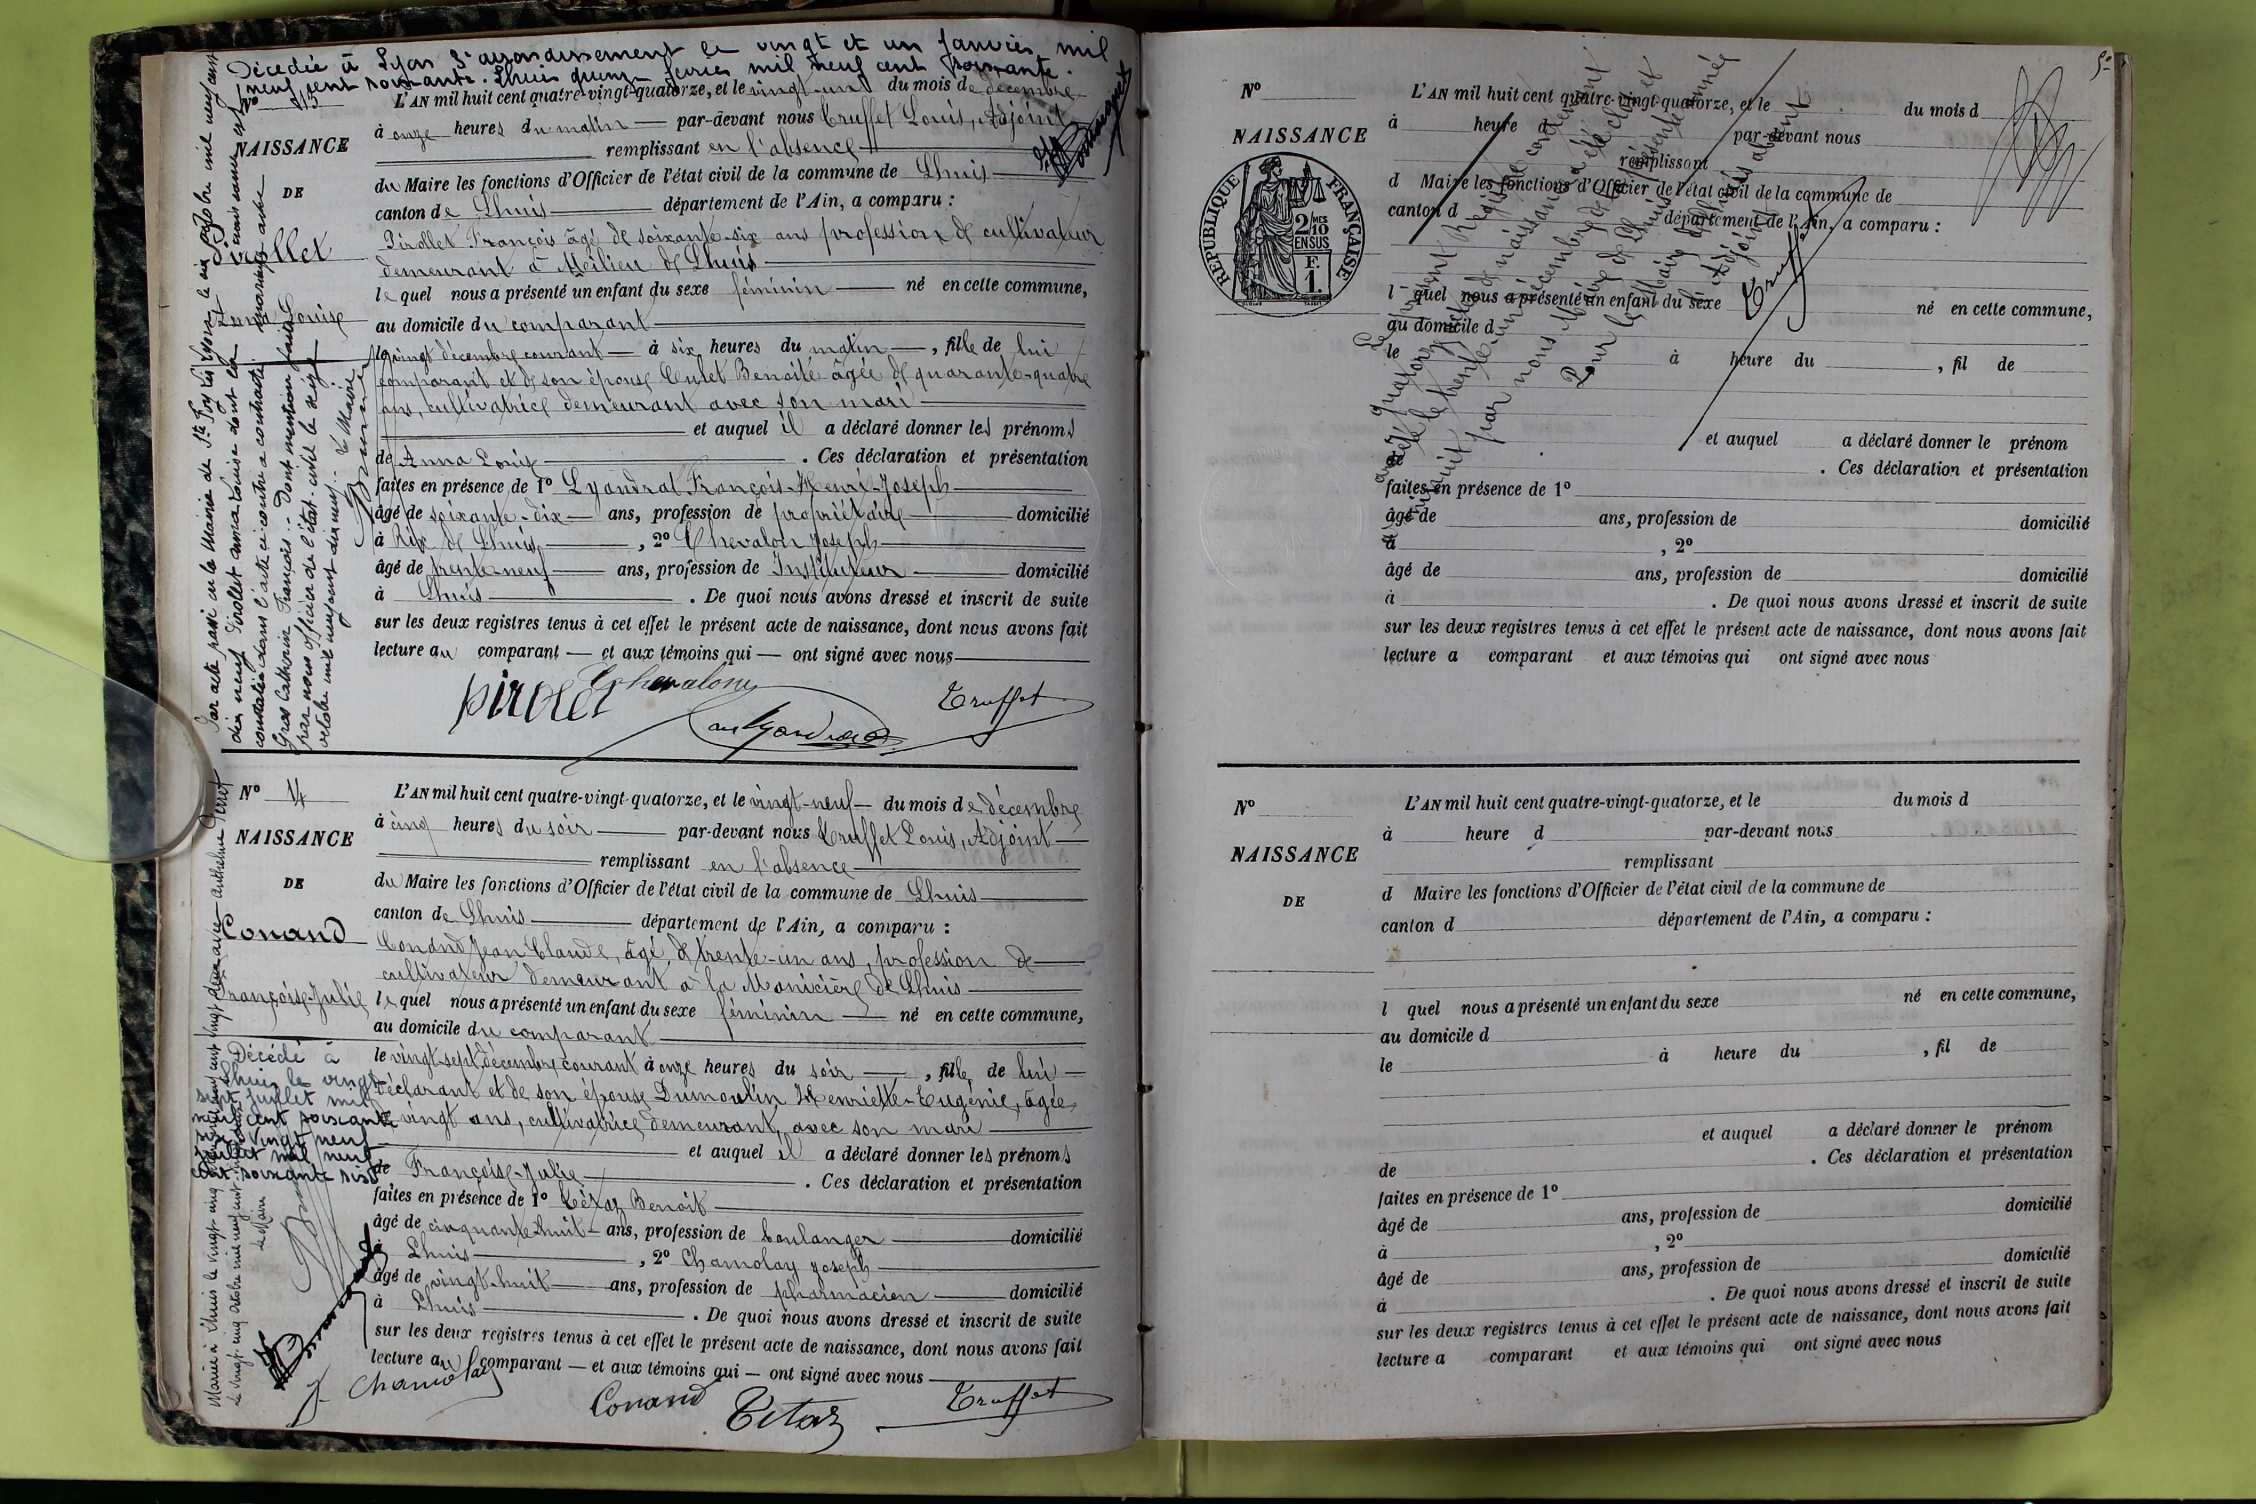 Décédée à Lyon 3e arrondissement le vingt et un janvier mil
neuf cent soixante. Lhuis quinze février mil neuf cent soixante.
L'AN mil huit cent quatre-vingt-quatorze, et le vingt-un du mois de décembre
à onze heures du matin par-devant nous Truffet Louis, Adjoint
remplissant en l'absence
du Maire les fonctions d'Officier de l'état civil de la commune de Lhuis
canton de Lhuis département de l'Ain, a comparu :
Pirollet François âgé de soixante-six ans profession de cultivateur
demeurant à Millieu de Lhuis
lequel nous a présenté un enfant du sexe féminin né en cette commune,
au domicile du comparant
le vingt décembre courant à six heures du matin, fille de lui
comparant et de son épouse Culet Benoîte âgée de quarante-quatre
ans, cultivatrice demeurant avec son mari
et auquel il a déclaré donner les prénoms
de Anna Louise. Ces déclaration et présentation
faites en présence de 1º Lyandrat François-Henri-Joseph
âgé de soixante-dix ans, profession de propriétaire domicilié
à Rix de Lhuis, 2º Chevalon Joseph
âgé de trente-neuf ans, profession de Instituteur domicilié
à Lhuis. De quoi nous avons dressé et inscrit de suite
sur les deux registres tenus à cet effet le présent acte de naissance, dont nous avons fait
lecture au comparant et aux témoins qui ont signé avec nous
Nº
NAISSANCE
DE
Pirollet
Anna Louise
Par acte passé en la Mairie de Ste Foy les Lyon le
dix neuf Pirolet Anna Louise dont la naissance est
constatée dans l'acte ci-contre a contracté mariage avec
Gros Catherin François. Dont mention faite
par nous officier de l'état-civil le
octobre mil neuf cent dix neuf. Le Maire
pirolet Chevalon Truffet
Lyandrat
Nº 14
NAISSANCE
DE
Conand
Françoise-Julie
L'AN mil huit cent quatre-vingt-quatorze, et le vingt-neuf du mois de décembre
à cinq heures du soir par-devant nous Truffet Louis, Adjoint
remplissant en l'absence
du Maire les fonctions d'Officier de l'état civil de la commune de Lhuis
canton de Lhuis département de l'Ain, a comparu :
Conand Jean Claude, âgé de trente-un ans, profession de
cultivateur demeurant à la Manicière de Lhuis
lequel nous a présenté un enfant du sexe féminin né en cette commune,
au domicile du comparant
le vingt-sept décembre courant à onze heures du soir, fille de lui
déclarant et de son épouse Dumoulin Henriette-Eugénie, âgée
de vingt ans, cultivatrice demeurant avec son mari
et auquel il a déclaré donner les prénoms
de Françoise-Julie. Ces déclaration et présentation
faites en présence de 1º Tétaz Benoit
âgé de cinquante-huit ans, profession de boulanger domicilié
à Lhuis, 2º Chamolay Joseph
âgé de vingt-huit ans, profession de pharmacien domicilié
à Lhuis. De quoi nous avons dressé et inscrit de suite
sur les deux registres tenus à cet effet le présent acte de naissance, dont nous avons fait
lecture au comparant et aux témoins qui ont signé avec nous
Décédé à
Lhuis le vingt
sept juillet mil
neuf cent soixante
six vingt neuf
juillet mil neuf
cent soixante six
Le Maire
J. Chamolay Conand Tétaz Truffet
Nº
NAISSANCE
RÉPUBLIQUE FRANÇAISE
2/10
EN SUS
F.
1.
L'AN mil huit cent quatre-vingt-quatorze, et le du mois d
à heure d par-devant nous
remplissant
d Maire les fonctions d'Officier de l'état civil de la commune de
canton d département de l'Ain, a comparu :
l quel nous a présenté un enfant du sexe né en cette commune,
au domicile d
le à heure du, fil de
et auquel a déclaré donner le prénom
de. Ces déclaration et présentation
faites en présence de 1º
âgé de ans, profession de domicilié
à, 2º
âgé de ans, profession de domicilié
à. De quoi nous avons dressé et inscrit de suite
sur les deux registres tenus à cet effet le présent acte de naissance, dont nous avons fait
lecture a comparant et aux témoins qui ont signé avec nous
Le présent Registre contenant
quatorze actes de naissance a été clos et
arrêté le trente-un décembre de la présente année
par nous Maire de Lhuis
Pour le Maire de Lhuis absent
L'Adjoint
Truffet
Nº
NAISSANCE
DE
L'AN mil huit cent quatre-vingt-quatorze, et le du mois d
à heure d par-devant nous
remplissant
d Maire les fonctions d'Officier de l'état civil de la commune de
canton d département de l'Ain, a comparu :
l quel nous a présenté un enfant du sexe né en cette commune,
au domicile d
le à heure du, fil de
et auquel a déclaré donner le prénom
de. Ces déclaration et présentation
faites en présence de 1º
âgé de ans, profession de domicilié
à, 2º
âgé de ans, profession de domicilié
à. De quoi nous avons dressé et inscrit de suite
sur les deux registres tenus à cet effet le présent acte de naissance, dont nous avons fait
lecture a comparant et aux témoins qui ont signé avec nous